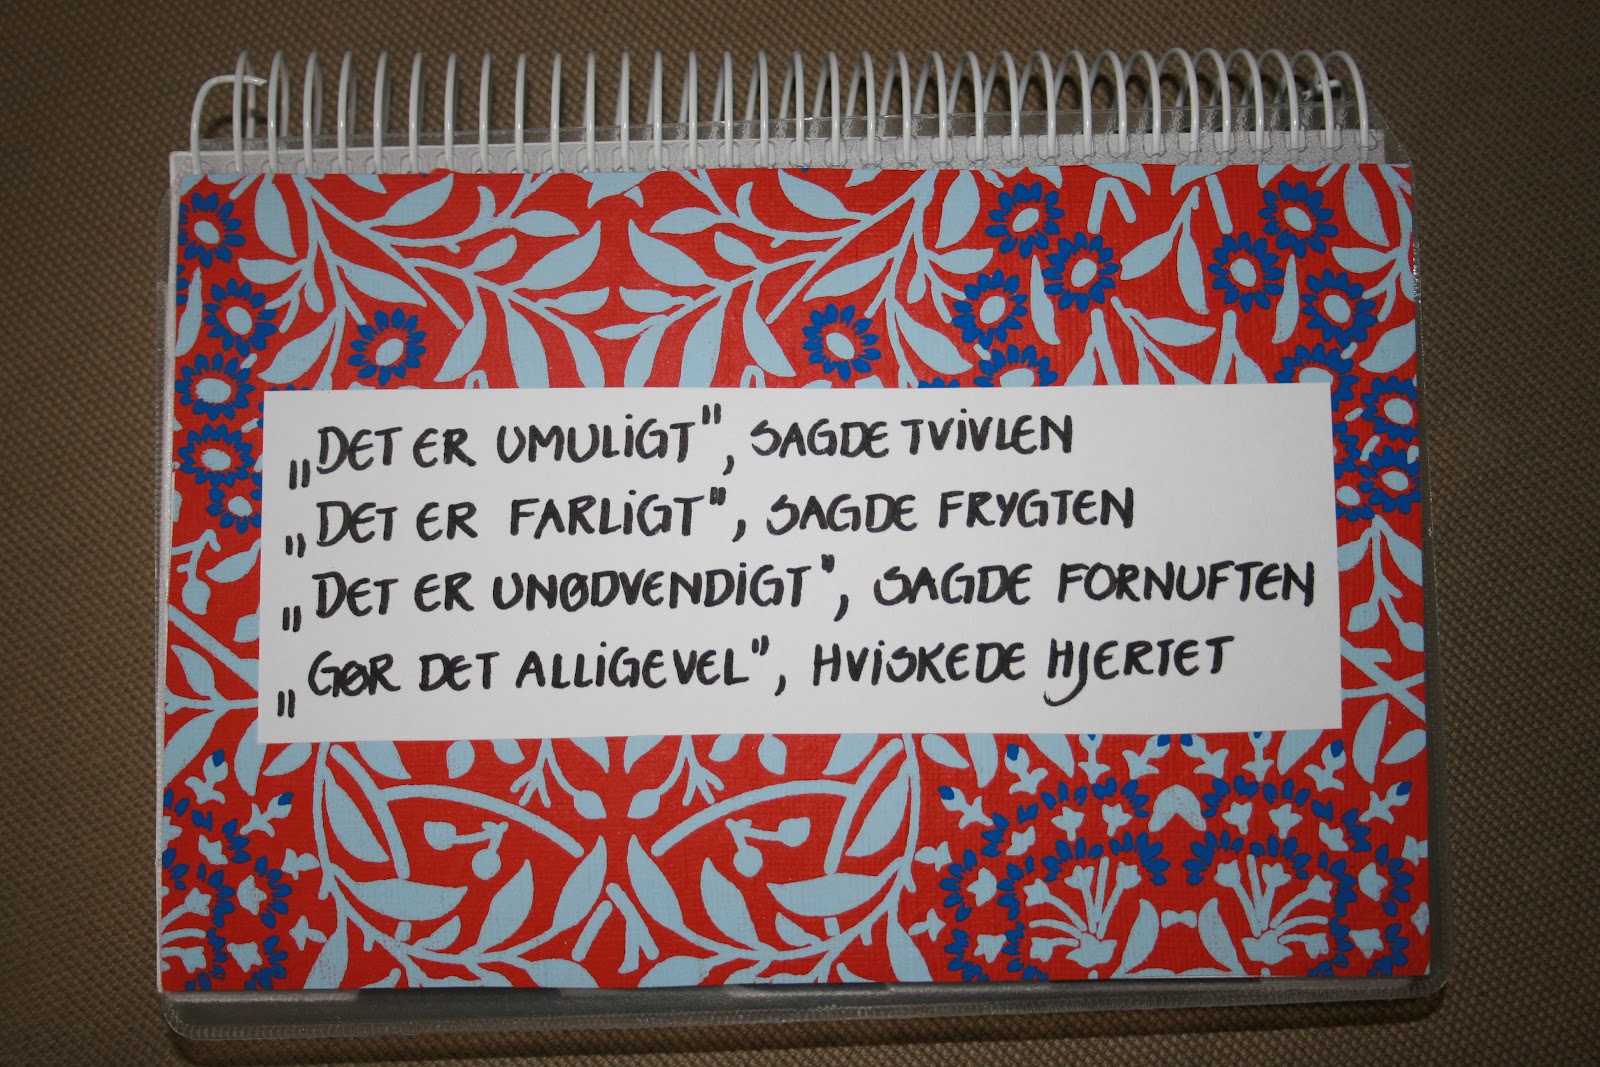 „DET ER UMULiGT", SAGDE TViVLEN
„DET ER FARLiGT", SAGDE FRYGTEN
„DET ER UNØDVENDiGT", SAGDE FORNUFTEN
„GØR DET ALLiGEVEL", HViSKEDE HJERTET